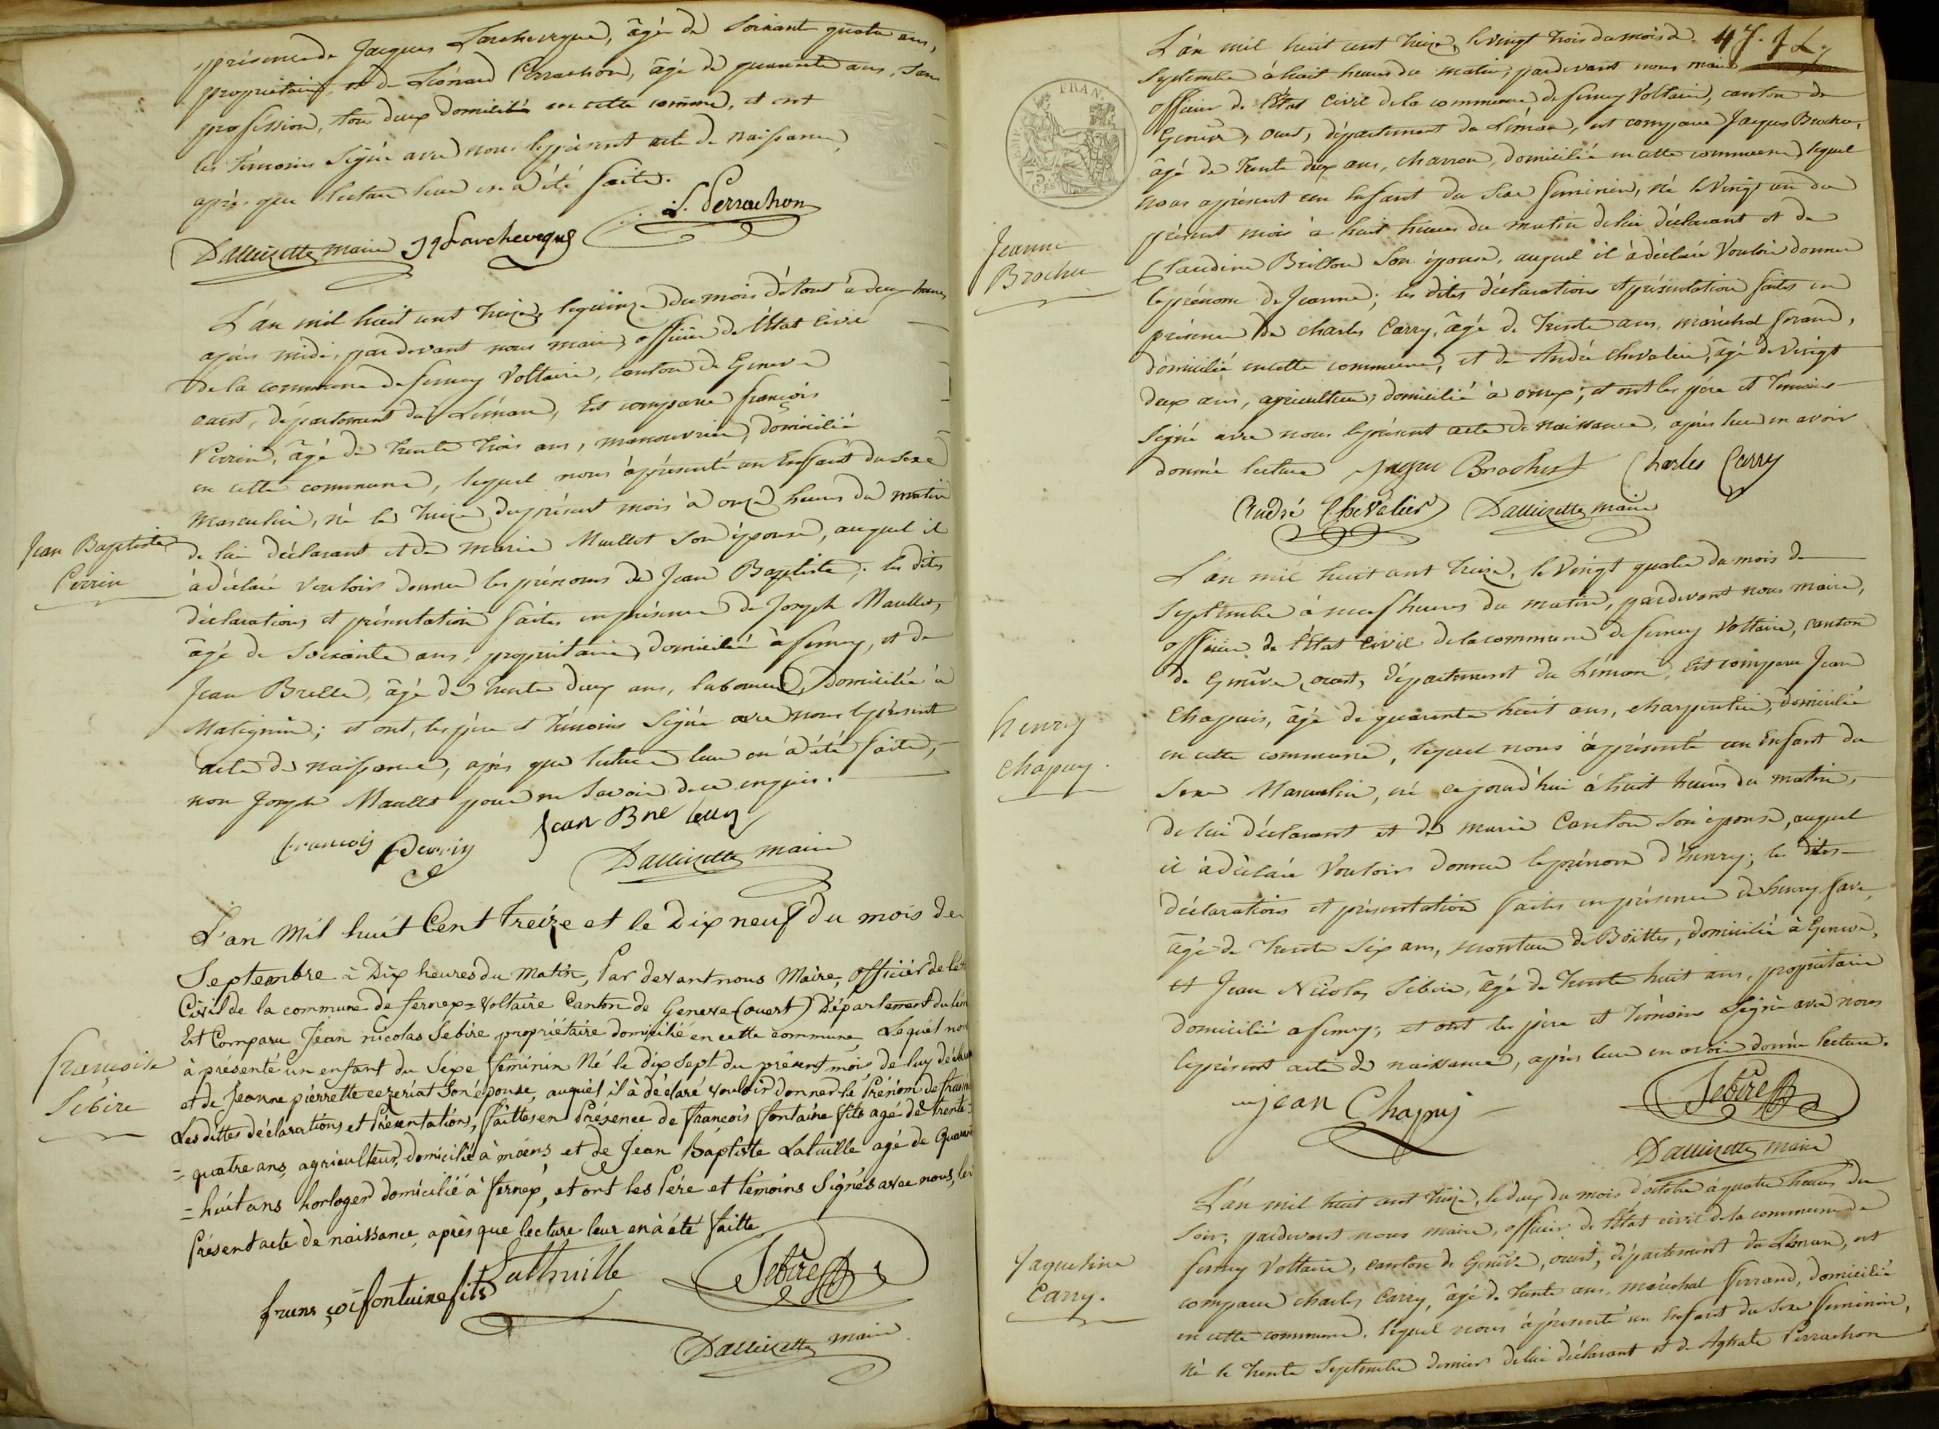 présence de Jacques Larchevêque, âgé de Soixante quatre ans,
propriétaire, et de Léonard Perrachon, âgé de quarante ans, Sans
profession, tous deux domiciliés en cette comune, et ont
les témoins Signé avec nous le présent acte de naissance,
après que lecture leur en a été faite.
L. Perrachon
Dallizette, maire Jq Larcheveque
L'an mil huit cent treize, le quinze du mois d'Aout à deux heures
après midi, pardevant nous maire, officier de l'Etat Civil
de la commune de ferney Voltaire, canton de Geneve
ouest, département du Léman, Est comparu françois
Perrin, âgé de trente trois ans, manouvrier, domicilié
en cette commune, lequel nous à présenté un Enfant du Sexe
Masculin, né le treize du présent mois à onze heures du matin
Jean Baptiste
Perrin
de lui déclarant et de marie Maullet Son épouse, auquel il
à déclaré vouloir donner les prénoms de Jean Baptiste; les dites
déclarations et présentation faites en présence de Joseph Maullet,
âgé de Soixante ans, propriétaire, domicilié à ferney, et de
Jean Brelle, âgé de trente deux ans, laboureur, domicilié à
Matignin; et ont, les père et témoins Signé avec nous le présent
acte de naissance, après que lecture leur en à été faite,
non Joseph Maullet pour ne Savoir de ce enquis.
francois Perrin Jean
Dallizette, maire
L'an Mil huit Cent treize et le Dix neuf du mois de
Septembre à Dix heures du Matin, Par devant nous Maire, officier de l'Et
Civil de la commune de fernex=Voltaire Canton de Geneve (ouest) Département du Lém
Est Comparu Jean Nicolas Sebire propriétaire domicilié en cette commune Lequel nou
françoise
Sebire
à présenté un enfant du Sexe féminin Né le dix Sept du présent mois de luy déclara
et de Jeanne pierrette cezeriat Son épouse, auquel il à déclaré vouloir donner le Prénom de fran
Les dittes déclarations et Présentations, faittes en Présence de françois fontaine fils agé de trente=
=quatre ans, agriculteur, domicilié à moëns et de Jean Baptiste Latuille agé de Quara
=huit ans horloger domicilié à fernex, et ont les Père et témoins Signés avec nous, le
Présent acte de naissance, après que lecture leur en à été faitte
Lathuille Sebire
frans çoi fontaine fils
Dallizette, maire
47.
L'an mil huit cent treize, le vingt trois du mois de
Septembre à huit heures du matin, pardevant nous maire
officier de l'Etat Civil de la commune de ferney Voltaire, canton de
Genève, ouest, département du Léman, est comparu Jaques Brochu,
âgé de trente deux ans, charron, domicilié en cette commune, lequel
nous a présenté un Enfant du Sexe feminin, né le vingt un du
présent mois à huit heures du matin de lui déclarant et de
Jeanne
Brochu
Claudine Son épouse, auquel il à déclaré vouloir donner
le prénom de Jeanne; les dites déclarations et présentation faites en
présence de Charles Carry, âgé de trente ans, maréchal ferrand,
domicilié en cette commune, et de André Chevalier, âgé de vingt
deux ans, agriculteur, domicilié à ornex; et ont les père et témoins
Signé avec nous le présent acte de naissance, après leur en avoir
donné lecture Charles Carry
André Chevalier Dallizette, maire
L'an mil huit cent treize, le vingt quatre du mois de
Septembre à neuf heures du matin, pardevant nous maire,
officier de l'Etat Civil de la commune de ferney Voltaire, canton
de Genève, ouest, département du Léman, est comparu Jean
henry
Chapuy.
Chapuis, âgé de quarante huit ans, charpentier, domicilié
en cette commune, lequel nous à présenté un Enfant du
Sexe Masculin, né ce jourd'hui à huit heures du matin,
de lui déclarant et de marie Canton Son épouse, auquel
il à déclaré vouloir donner le prénom d'henry; les dites
déclarations et présentation faites en présence de henry favre,
âgé de trente Six ans, monteur de Boittes, domicilié à Geneve,
et Jean Nicolas Sebire, âgé de trente huit ans, propriétaire
domicilié a ferney; et ont les père et témoins Signé avec nous
le présent acte de naissance, après leur en avoir donné lecture.
jean Chapuy Sebire
Dallizette, maire
L'an mil huit cent treize, le deux du mois d'octobre à quatre heures du
Soir, pardevant nous maire, officier de l'Etat civil de la commune de
Jaqueline
Carry.
ferney Voltaire, canton de Genève, ouest, département du Léman, est
comparu charles Carry, âgé de trente ans, maréchal ferrand, domicilié
en cette commune, lequel nous à présenté un Enfant du Sexe feminin,
né le trente Septembre dernier de lui déclarant et de Agathe Perrachon